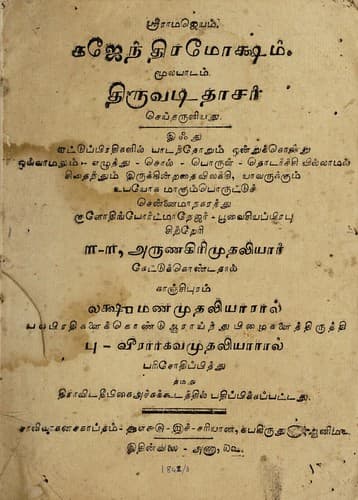 ஸ்ரீராமஜெயம்.
கஜேந்திரமோக்ஷம்.
மூலபாடம்.
திருவடிதாசர்
செய்தருளியது.
இஃது
ஏட்டுப்பிரதிகளில் பாடந்தோறும் ஒன்றுக்கொன்று
ஒவ்வாமலும் - எழுத்து - சொல் - பொருள் - தொடர்ச்சி யில்லாமல்
சிதைந்தும் இருக்கின்றதைவிலக்கி, யாவருக்கும்
உபயோக மாகும்பொருட்டுச்
சென்னைமாநகரத்து
பூவையியப்பிரபு
சித்தூர்
ஈ-ஈ, அருணகிரிமுதலியார்
கேட்டுக்கொண்டதால்
காஞ்சிபுரம்
லக்ஷுமணமுதலியாரால்
பலபிரதிகளைக்கொண்டு ஆராய்ந்து பிழைகளைத்திருத்தி
பு - வீரார்க்வமுதலியாரால்
பரிசோதிப்பித்து
தமது
திராவிடதீபிகைஅச்சுக்கூடத்தில் பதிப்பிக்கப்பட்டது.
சாலிவாகனசகாப்தம்
இதின்விலை - அணா,
184